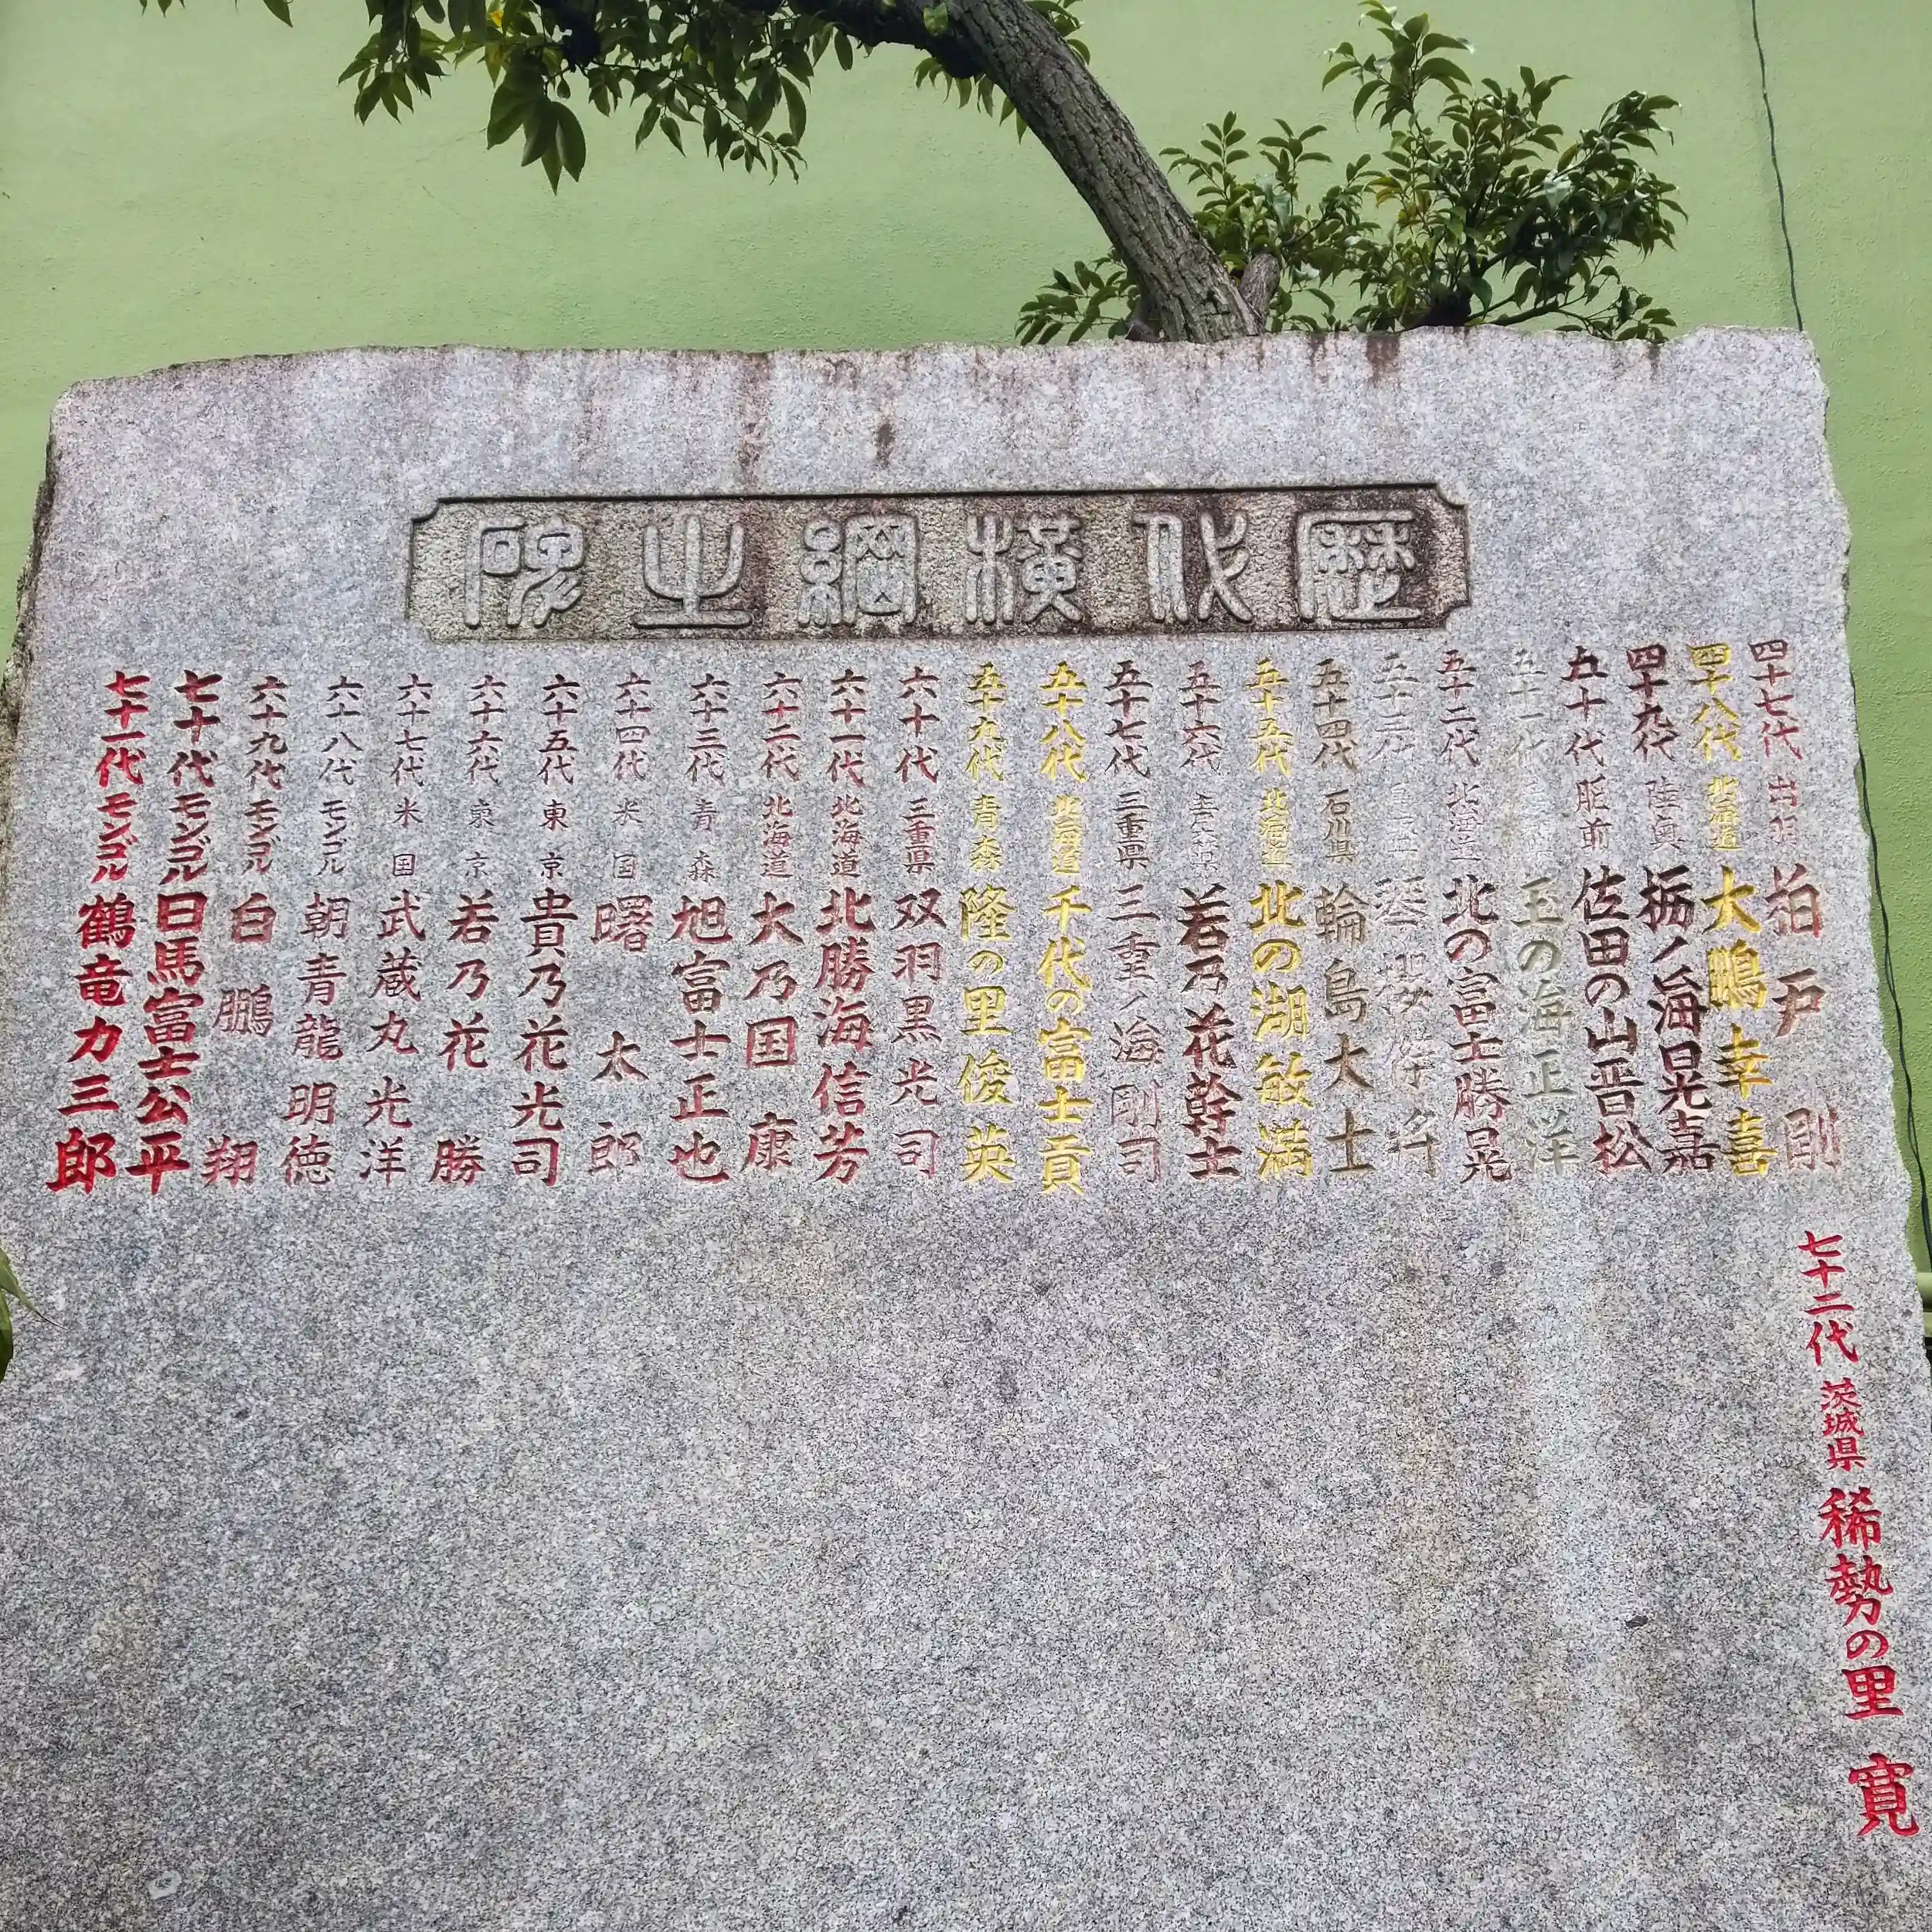 歴代横綱之碑
四十七代 出羽 柏戸 剛
四十八代 北海道 大鵬幸喜
四十九代 陸奥 栃ノ海晃嘉
五十代 肥前 佐田の山晋松
五十一代 玉の海正洋
五十二代 北海道 北の富士勝晃
五十三代 琴櫻傑将
五十四代 石川県 輪島大士
五十五代 北海道 北の湖敏満
五十六代 青森県 若乃花幹士
五十七代 三重県 三重ノ海剛司
五十八代 北海道 千代の富士貢
五十九代 青森 隆の里俊英
六十代 三重県 双羽黒光司
六十一代 北海道 北勝海信芳
六十二代 北海道 大乃国 康
六十三代 青森 旭富士正也
六十四代 米国 曙 太郎
六十五代 東京 貴乃花光司
六十六代 東京 若乃花 勝
六十七代 米国 武蔵丸光洋
六十八代 モンゴル 朝青龍明徳
六十九代 モンゴル 白鵬 翔
七十代 モンゴル 日馬富士公平
七十一代 モンゴル 鶴竜力三郎
七十二代 茨城県 稀勢の里 寛